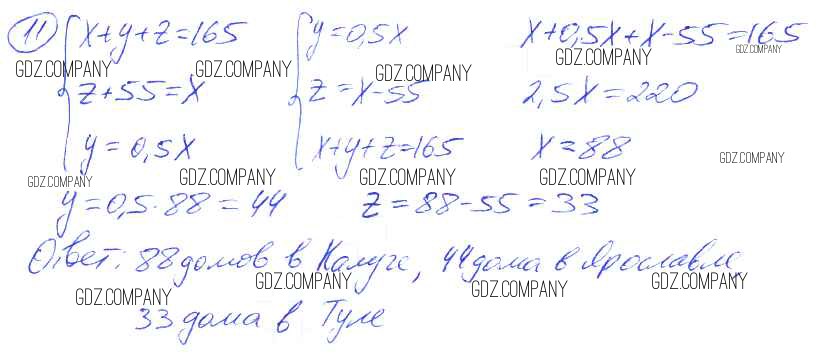 11 { x+y+z=165 { y=0,5x x+0,5x+x-55=165
GDZ.COMPANY GDZ.COMPANY GDZ.COMPANY GDZ.COMPANY GDZ.COMPANY
z+55=x z=x-55 2,5x=220
y=0,5x x+y+z=165 x=88
GDZ.COMPANY GDZ.COMPANY GDZ.COMPANY GDZ.COMPANY GDZ.COMPANY
y=0,5·88=44 z=88-55=33
Ответ: 88 домов в Калуге, 44 дома в Ярославле,
GDZ.COMPANY GDZ.COMPANY GDZ.COMPANY GDZ.COMPANY
33 дома в Туле